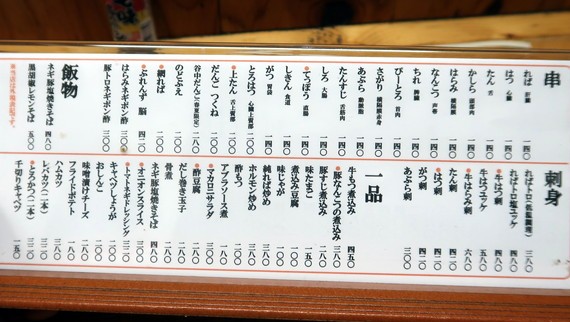 串
れば 肝臓 一四〇
はつ 心臓 一四〇
たん 舌 一四〇
かしら 頭部肉 一四〇
はらみ 横隔膜 一四〇
なんこつ 声帯 一四〇
ちれ 脾臓 一四〇
びーとろ 首肉 一四〇
さがり 横隔膜赤身 一四〇
あぶら 一四〇
たんすじ 舌筋肉 一四〇
しろ 大腸 一四〇
てっぽう 直腸 一四〇
しきん 食道 一四〇
がつ 胃袋 一四〇
とろはつ 心臓上管部 二〇〇
上たん 舌上質部 二〇〇
だんご つくね 二〇〇
谷中だんご(春夏限定) 二〇〇
のどぶえ 二〇〇
網れば 二〇〇
ぶれんず 脳 四二〇
はらみネギポン酢 三〇〇
豚トロネギポン酢 三〇〇
飯物
ネギ豚塩焼きそば 四八〇
黒胡椒レモンそば 五〇〇
刺身
ればトロ(低温調理) 三八〇
ればトロ塩ユッケ 四八〇
牛はつ刺 四八〇
牛はつユッケ 五八〇
牛はらみ刺 六八〇
たん刺 四二〇
はつ刺 四二〇
がつ刺 四二〇
あぶら刺 三〇〇
一品
牛もつ煮込み 四五〇
豚なんこつの煮込み 三八〇
豚すじ煮込み 三八〇
味たま 一五〇
煮込み豆腐 二〇〇
味じゃが 二〇〇
純れば炒め
ホルモン炒め 三八〇
酢もつ
アブラソース煮
マカロニサラダ
酢豆腐
だし巻き玉子
骨煮
ネギ豚塩焼きそば 四八〇
オニオンスライス
トマトネギドレッシング
キャベツしょうが
おしんこ
味噌漬けチーズ
フライドポテト
ハムカツ
レバカツ(二本) 三二〇
とろかつ(二本)
千切りキャベツ 一五〇